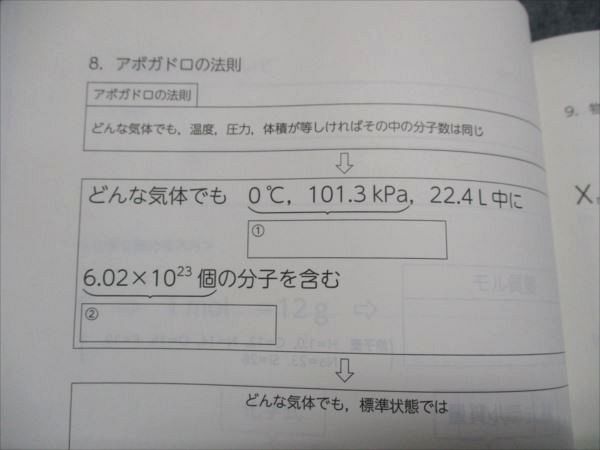 8. アボガドロの法則
アボガドロの法則
どんな気体でも，温度，圧力，体積が等しければその中の分子数は同じ
どんな気体でも 0℃，101.3 kPa，22.4 L 中に
①
6.02×10²³ 個の分子を含む
②
どんな気体でも，標準状態では
9. 物
X